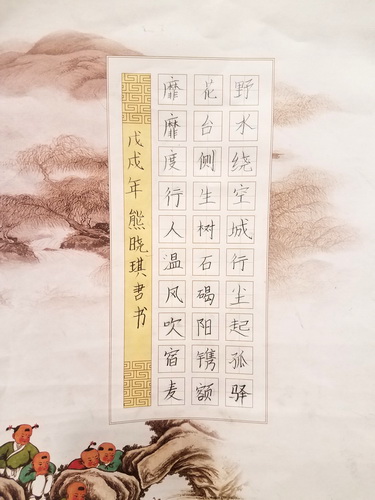 野水绕空城行尘起孤驿
花台侧生树石碣阳镌额
靡靡度行人温风吹宿麦
戊戌年熊晓琪书